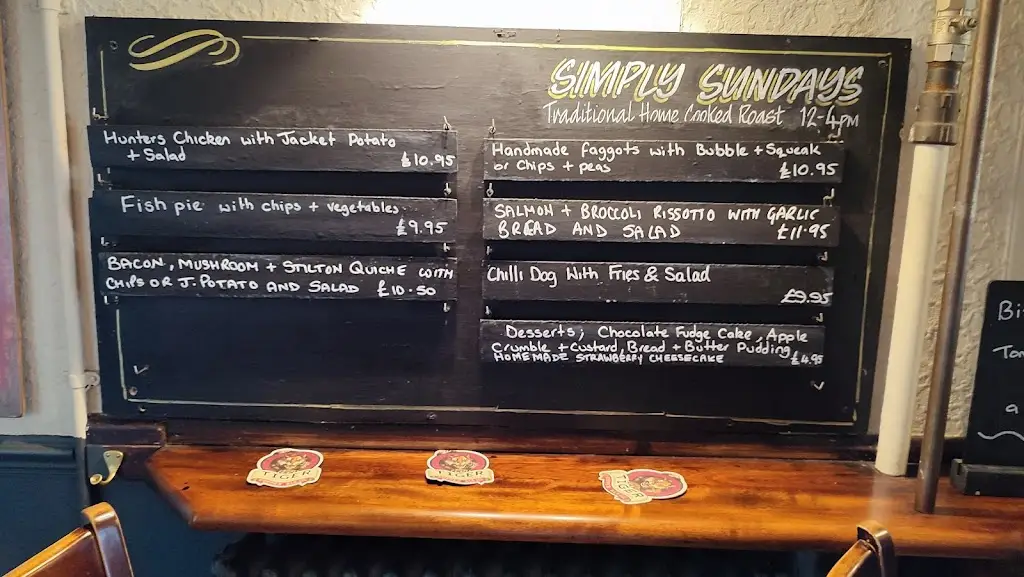 SIMPLY SUNDAYS
Traditional Home Cooked Roast 12-4PM
Hunters Chicken with Jacket Potato
+ Salad £10.95
Fish pie with chips + vegetables
£9.95
BACON, MUSHROOM + STILTON QUICHE WITH
CHIPS OR J. POTATO AND SALAD £10.50
Handmade faggots with Bubble + Squeak
or Chips + peas £10.95
SALMON + BROCCOLI RISSOTTO WITH GARLIC
BREAD AND SALAD £11.95
Chilli Dog With Fries & Salad
£9.95
Desserts; Chocolate Fudge Cake, Apple
Crumble + Custard, Bread + Butter Pudding
HOMEMADE STRAWBERRY CHEESECAKE £4.95
TIGER
TIGER
TIGER
a